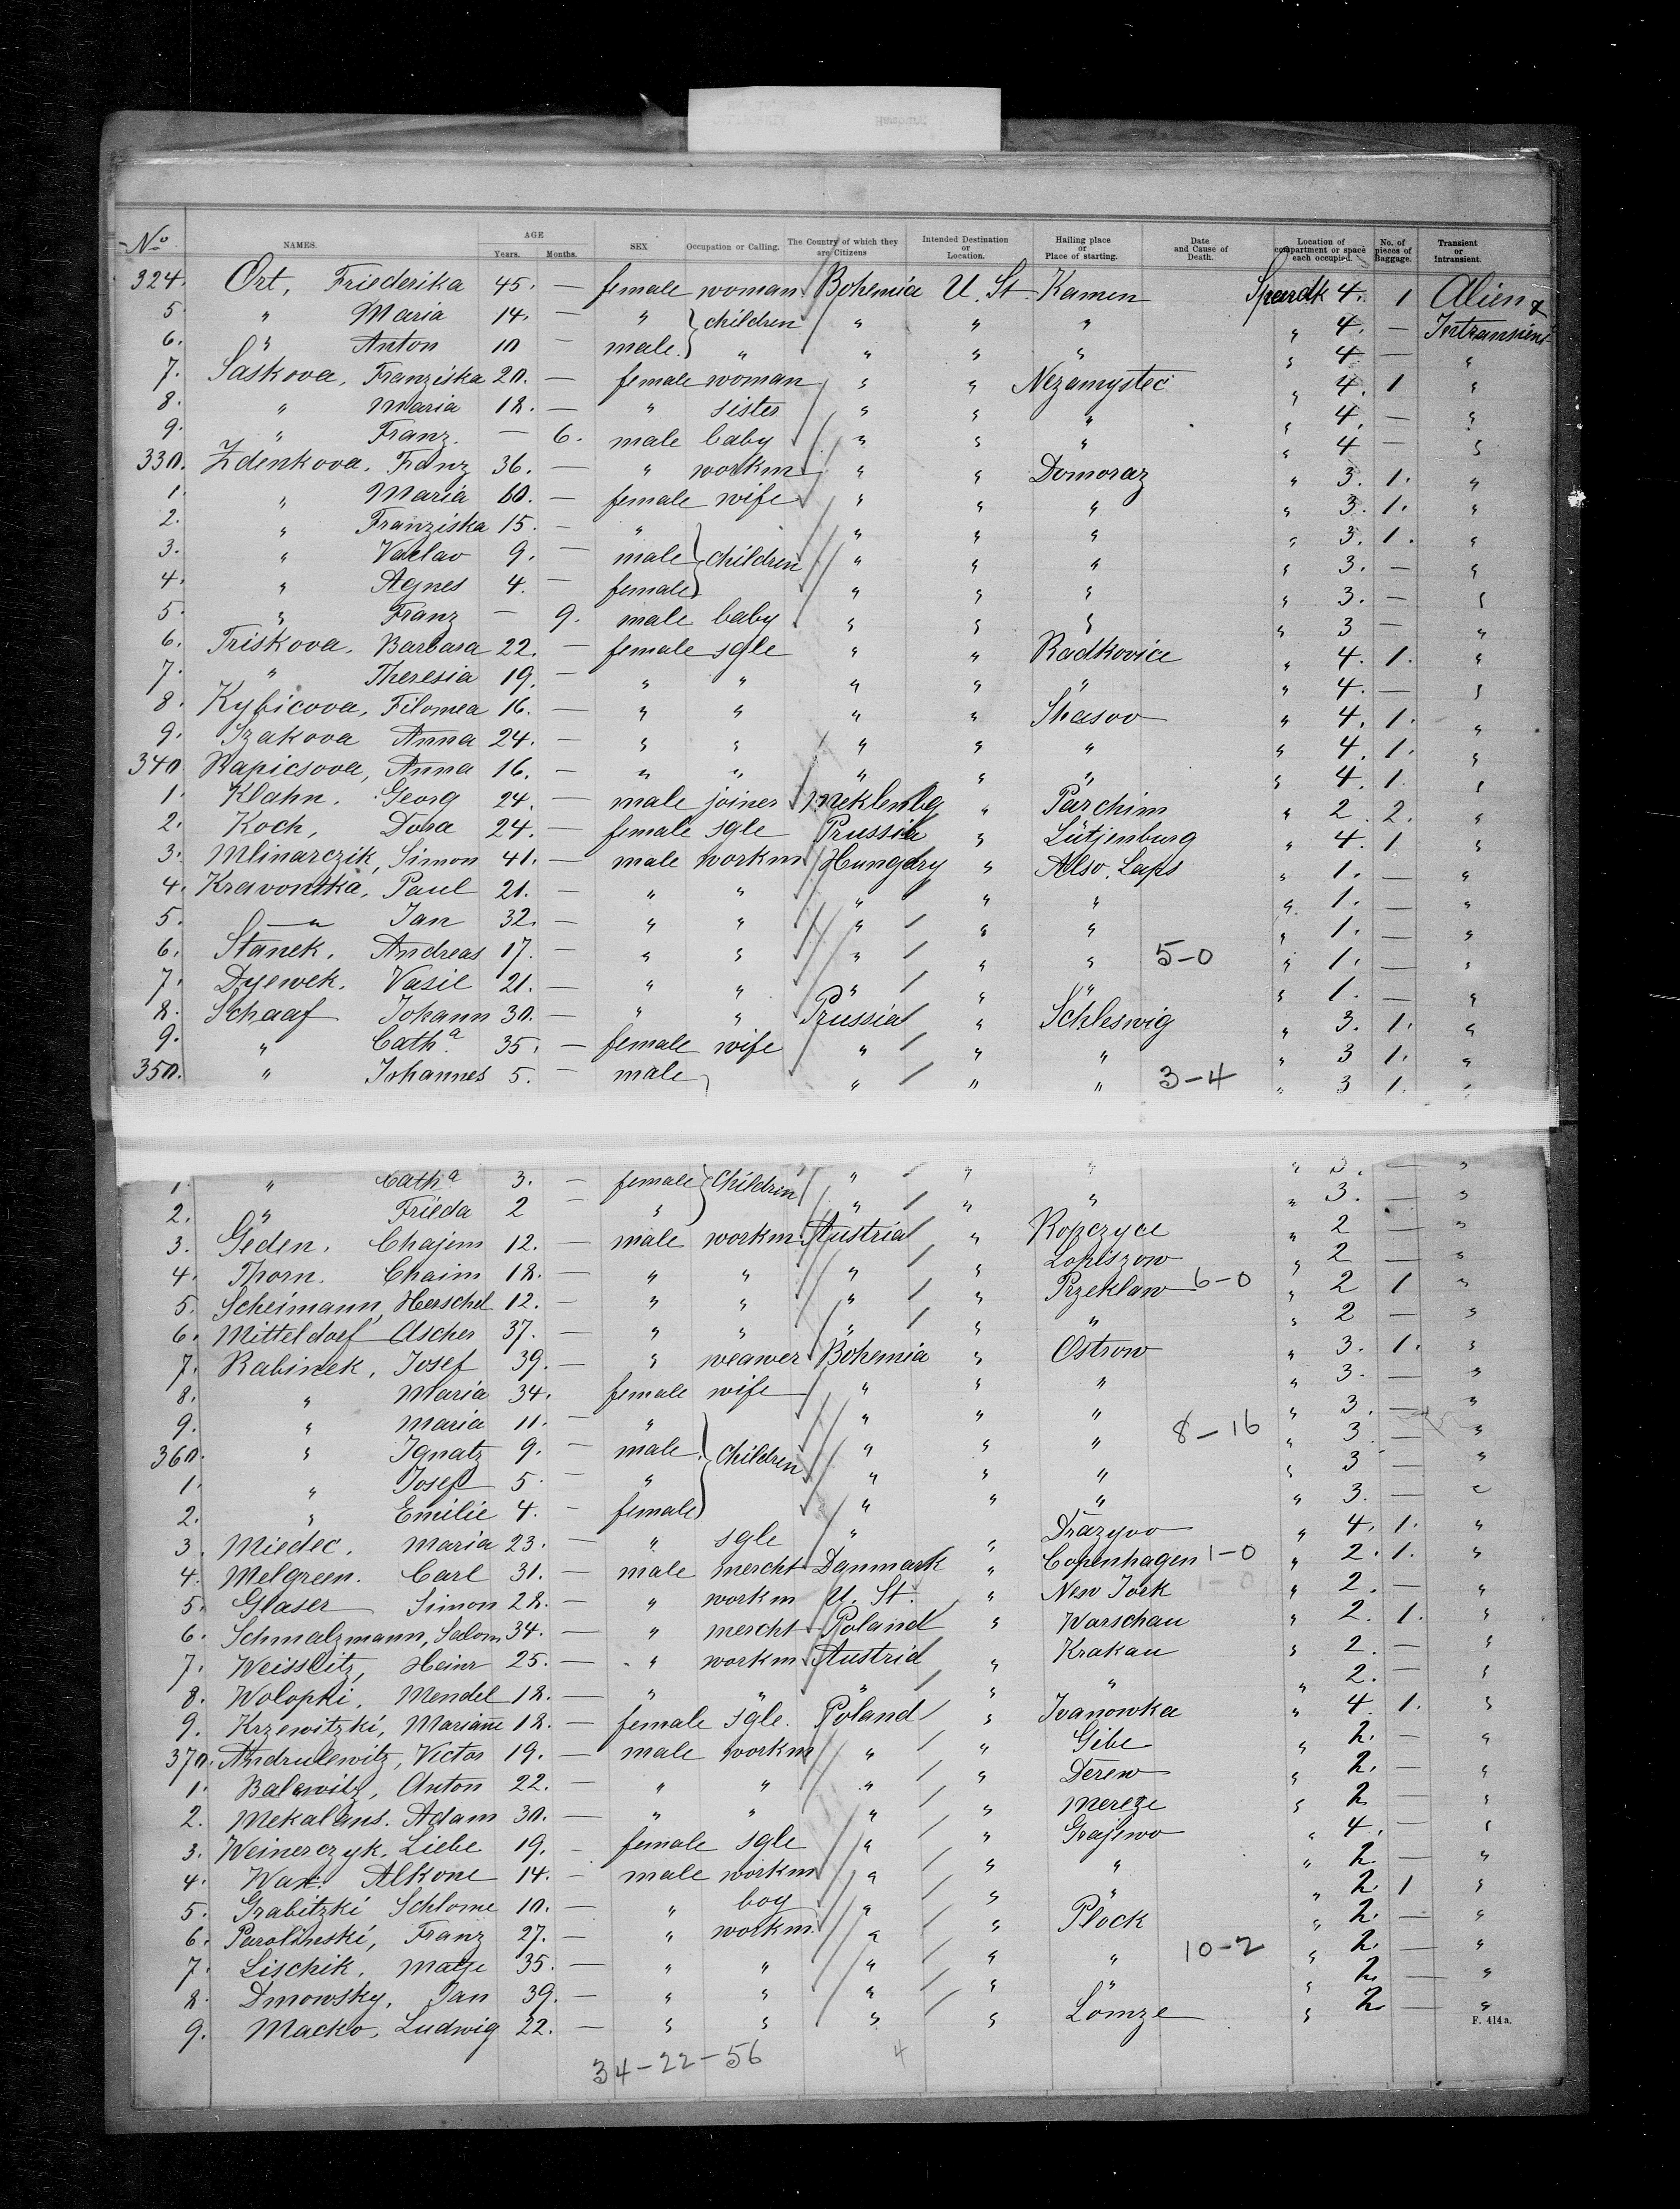 No NAMES. AGE Years. Months. SEX Occupation or Calling. The Country of which they are Citizens Intended Destination or Location. Hailing place or Place of starting. Date and Cause of Death. Location of compartment or space each occupied. No. of pieces of Baggage. Transient or Intransient.
324. Ort, Friederika 45. — female woman Bohemia U. St. Kamen 4. 1 Alien &
5. " Maria 14. — " children " " " " 4. — Intransient
6. " Anton 10 — male " " " " " 4 — "
7. Saskova, Franziska 20. — female woman " " Nezamystec " 4. 1 "
8. " Maria 18. — " sister " " " " 4. — "
9. " Franz. — 6. male baby " " " " 4 — "
330. Zdenkova, Franz 36. — " workm " " Domoraz " 3. 1. "
1. " Maria 60. — female wife " " " " 3. 1. "
2. " Franziska 15. — " " " " " 3. 1. "
3. " Vaclav 9. — male children " " " " 3. — "
4. " Agnes 4. — female " " " " 3. — "
5. " Franz — 9. male baby " " " " 3 — "
6. Triskova, Barbara 22. — female sgle " " Radkovice " 4. 1. "
7. " Theresia 19. — " " " " " " 4. — "
8. Kybicova, Filomea 16. — " " " " Shasov " 4. 1. "
9. Izakova Anna 24. — " " " " " " 4. 1. "
340. Rapicsova, Anna 16. — " " " " " " 4. 1. "
1. Klahn, Georg 24. — male joiner Meklenbg " Parchim " 2 2. "
2. Koch, Dora 24. — female sgle Prussia " Lütjenburg " 4. 1 "
3. Mlinarczik, Simon 41. — male workm Hungary " Also. Laps " 1. — "
4. Kravontka, Paul 21. — " " " " " " 1. — "
5. — " Jan 32. — " " " " " " 1. — "
6. Stanek, Andreas 17. — " " " " " 5-0 " 1. — "
7. Dyewek, Vasil 21. — " " " " " " 1. — "
8. Schaaf Johann 30. — " " Prussia " Schleswig " 3. 1. "
9. " Catha. 35. — female wife " " " " 3 1. "
350. " Johannes 5. — male " " " 3-4 " 3 1. "
1. " Catha 3. — female Children " " " " 3. — "
2. " Frieda 2 — " " " " " 3. — "
3. Geden, Chajem 12. — male workm Austria " Ropczyce " 2 — "
4. Thorn. Chaim 18. — " " " " Lopiszow " 2 — "
5. Scheimann, Herschel 12. — " " " " Przeklaw 6-0 " 2 1 "
6. Mitteldorf Ascher 37. — " " " " " " 2 — "
7. Rabinek, Josef 39. — " weawer Bohemia " Ostrow " 3. 1. "
8. " Maria 34. — female wife " " " " 3. — "
9. " Maria 11. — " " " " " 3. — "
360. " Ignatz 9. — male children " " " 8-16 " 3 — "
1. " Josef 5. — " " " " " 3 — "
2. " Emilie 4. — female " " " " 3. — "
3. Miedec, Maria 23. — " sgle " " Drazyvo " 4. 1. "
4. Melgreen. Carl 31. — male mercht Danmark " Copenhagen 1-0 " 2. 1. "
5. Glaser Simon 28. — " workm U. St. " New York 1-0 " 2. — "
6. Schmalzmann, Salom 34. — " mercht Poland " Warschau " 2. 1. "
7. Weisslitz, Heinr 25. — " workm Austria " Krakau " 2. — "
8. Wolopki, Mendel 18. — " " " " " " 2. — "
9. Krzewitzki, Marianne 18. — female sgle. Poland " Ivanowka " 4 1. "
370. Andrulewitz, Victor 19. — male workm " " Gibe " 2. — "
1. Balawitz, Anton 22. — " " " " Derew " 2. — "
2. Mekalans. Adam 30. — " " " " Mereze " 2 — "
3. Weinerczyk, Liebe 19. — female sgle " " Grajewo " 4. — "
4. Wax. Alkone 14. — male workm " " " " 2. — "
5. Grabitzki Schlome 10. — " boy " " " " 2. 1 "
6. Parolinski, Franz 27. — " workm " " Plock " 2. — "
7. Lischik, Matje 35. — " " " " " 10-2 " 2. — "
8. Dmowsky, Jan 39. — " " " " " " 2. — "
9. Macko, Ludwig 22. — " " " " Lomze " 2 — "
F. 414a.
34-22-56 4